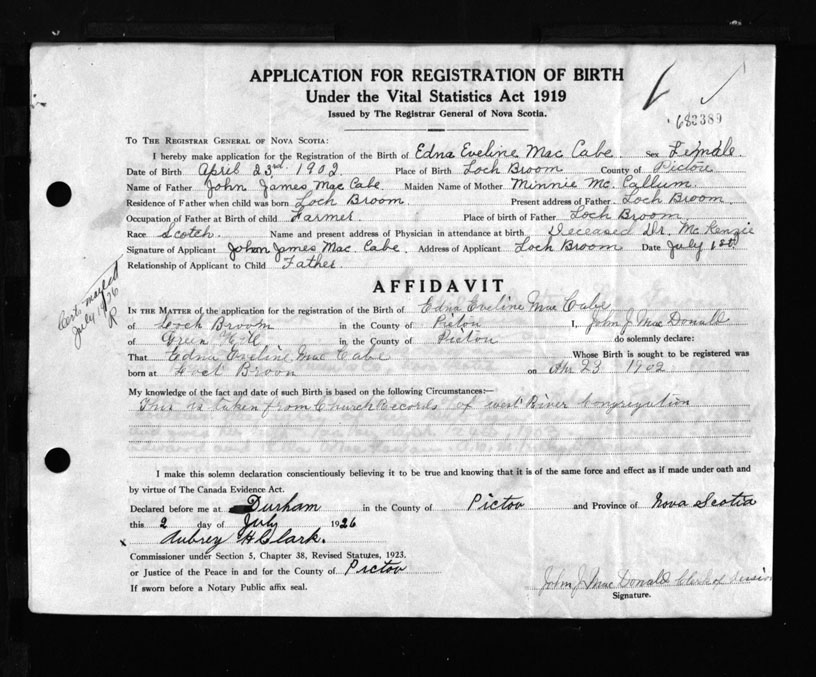 APPLICATION FOR REGISTRATION OF BIRTH
Under the Vital Statistics Act 1919
Issued by The Registrar General of Nova Scotia.
682389
TO THE REGISTRAR GENERAL OF NOVA SCOTIA:
I hereby make application for the Registration of the Birth of Edna Eveline Mac Cabe. Sex Female.
Date of Birth April 23rd 1902 Place of Birth Loch Broom County of Pictou
Name of Father John James Mac Cabe Maiden Name of Mother Minnie Mc. Callum.
Residence of Father when child was born Loch Broom. Present address of Father Loch Broom.
Occupation of Father at Birth of child Farmer. Place of birth of Father Loch Broom.
Race Scotch. Name and present address of Physician in attendance at birth Deceased Dr. McKenzie
Signature of Applicant John James Mac. Cabe. Address of Applicant Loch Broom Date July 1st
Relationship of Applicant to Child Father.
AFFIDAVIT
July 1926
R
IN THE MATTER of the application for the registration of the Birth of Edna Eveline Mac Cabe
of Loch Broom in the County of Pictou I, John J. Mac Donald
of Green Hill in the County of Pictou do solemnly declare:
That Edna Eveline Mac Cabe Whose Birth is sought to be registered was
born at Broom on Apr 23 1902
My knowledge of the fact and date of such Birth is based on the following Circumstances:—
This is taken from Church Records of West River Congregation
I make this solemn declaration conscientiously believing it to be true and knowing that it is of the same force and effect as if made under oath and
by virtue of The Canada Evidence Act.
Declared before me at Durham in the County of Pictou and Province of Nova Scotia
this 2 day of July 1926
x Aubrey H Clark.
Commissioner under Section 5, Chapter 38, Revised Statutes, 1923.
or Justice of the Peace in and for the County of Pictou
If sworn before a Notary Public affix seal.
John J. Mac Donald Clerk of Session
Signature.